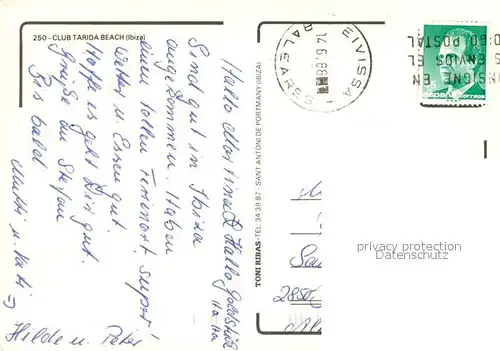 250 - CLUB TARIDA BEACH (Ibiza)
Hallo Martina & Hallo
Ha Ha
Sind gut in Ibiza
angekommen. Haben
einen tollen Ferienort, super!
Wetter u. Essen gut.
Hoffe es geht Dir gut.
Grüße an Stefan
Bis bald
Mutti u. Vati
Hilde u. Peter
TONI RIBAS - TEL. 34 39 87 - SANT ANTONI DE PORTMANY (IBIZA)
EIVISSA
14.6.88
BALEARES
CONSIGNE EN
SUS ENVIOS EL
CODIGO POSTAL
españa correos
2850
privacy protection
for DSVGO